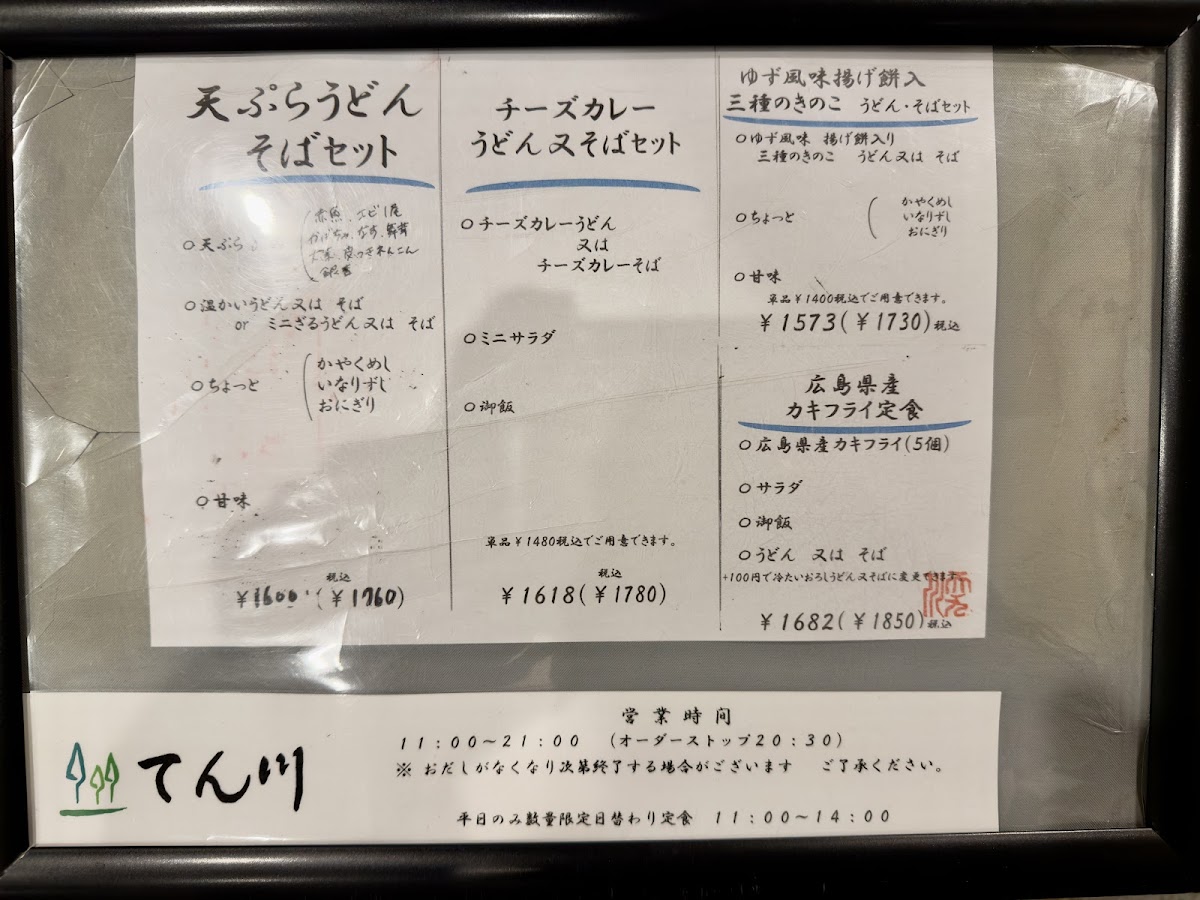 天ぷらうどん
そばセット
○天ぷら
赤魚、エビ1尾
かぼちゃ、なす、舞茸
皮つきれんこん
銀杏
○温かいうどん又は そば
or ミニざるうどん又は そば
○ちょっと
かやくめし
いなりずし
おにぎり
○甘味
税込
(¥1760)
チーズカレー
うどん又そばセット
○チーズカレーうどん
又は
チーズカレーそば
○ミニサラダ
○御飯
単品¥1480税込でご用意できます。
税込
¥1618(¥1780)
ゆず風味揚げ餅入
三種のきのこ うどん・そばセット
○ゆず風味 揚げ餅入り
三種のきのこ うどん又は そば
○ちょっと
かやくめし
いなりずし
おにぎり
○甘味
単品¥1400税込でご用意できます。
¥1573(¥1730)税込
広島県産
カキフライ定食
○広島県産カキフライ(5個)
○サラダ
○御飯
○うどん 又は そば
+100円で冷たいおろしうどん又そばに変更できます
¥1682(¥1850)税込
てん川
営業時間
11:00~21:00 (オーダーストップ20:30)
※ おだしがなくなり次第終了する場合がございます ご了承ください。
平日のみ数量限定日替わり定食 11:00~14:00